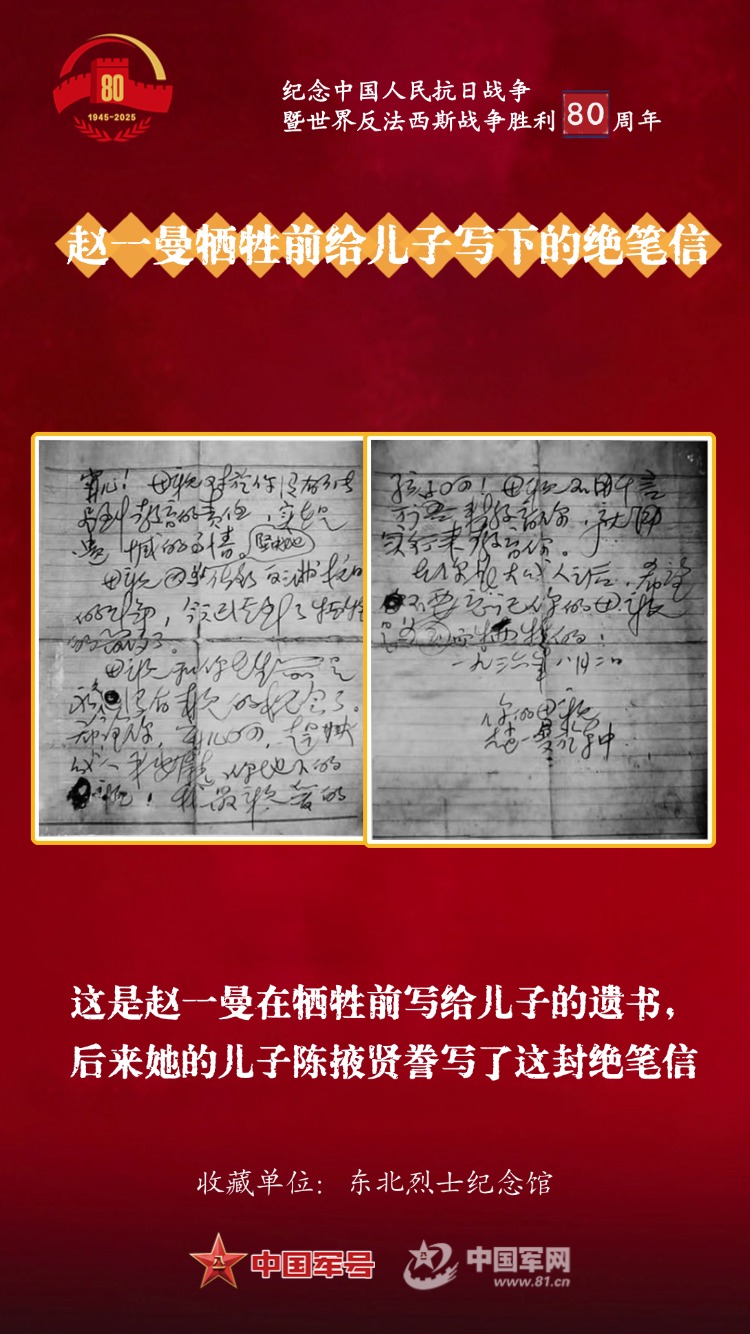 80
1945-2025
纪念中国人民抗日战争
暨世界反法西斯战争胜利80周年
赵一曼牺牲前给儿子写下的绝笔信
宁儿！母亲对于你没有能
尽到教育的责任，实在是
遗憾的事情。坚决地
母亲因 做了反满抗日
的斗争，今天已经到了牺牲
的前夕了。
母亲和你在生前是
永久没有再见的机会了。
希望你，宁儿啊，赶快
成人来安慰你地下的
母亲！我最亲爱的
孩子啊！母亲不用千言
万语来教育你，就用
实行来教育你。
在你长大成人之后，希望
不要忘记你的母亲
是为国而牺牲的！
一九三六年八月二日
你的母亲
赵一曼于车中
这是赵一曼在牺牲前写给儿子的遗书，
后来她的儿子陈掖贤誊写了这封绝笔信
收藏单位：东北烈士纪念馆
中国军号
中国军网
www.81.cn